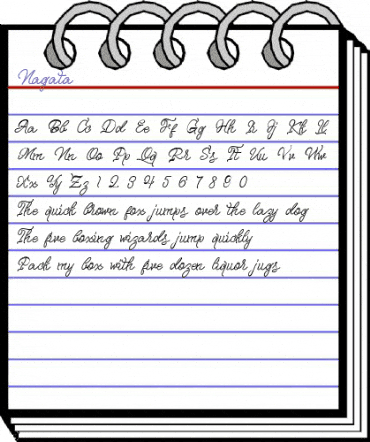 Nagata
Aa Bb Cc Dd Ee Ff Gg Hh Ii Jj Kk Ll
Mm Nn Oo Pp Qq Rr Ss Tt Uu Vv Ww
Xx Yy Zz 1 2 3 4 5 6 7 8 9 0
The quick brown fox jumps over the lazy dog
The five boxing wizards jump quickly
Pack my box with five dozen liquor jugs